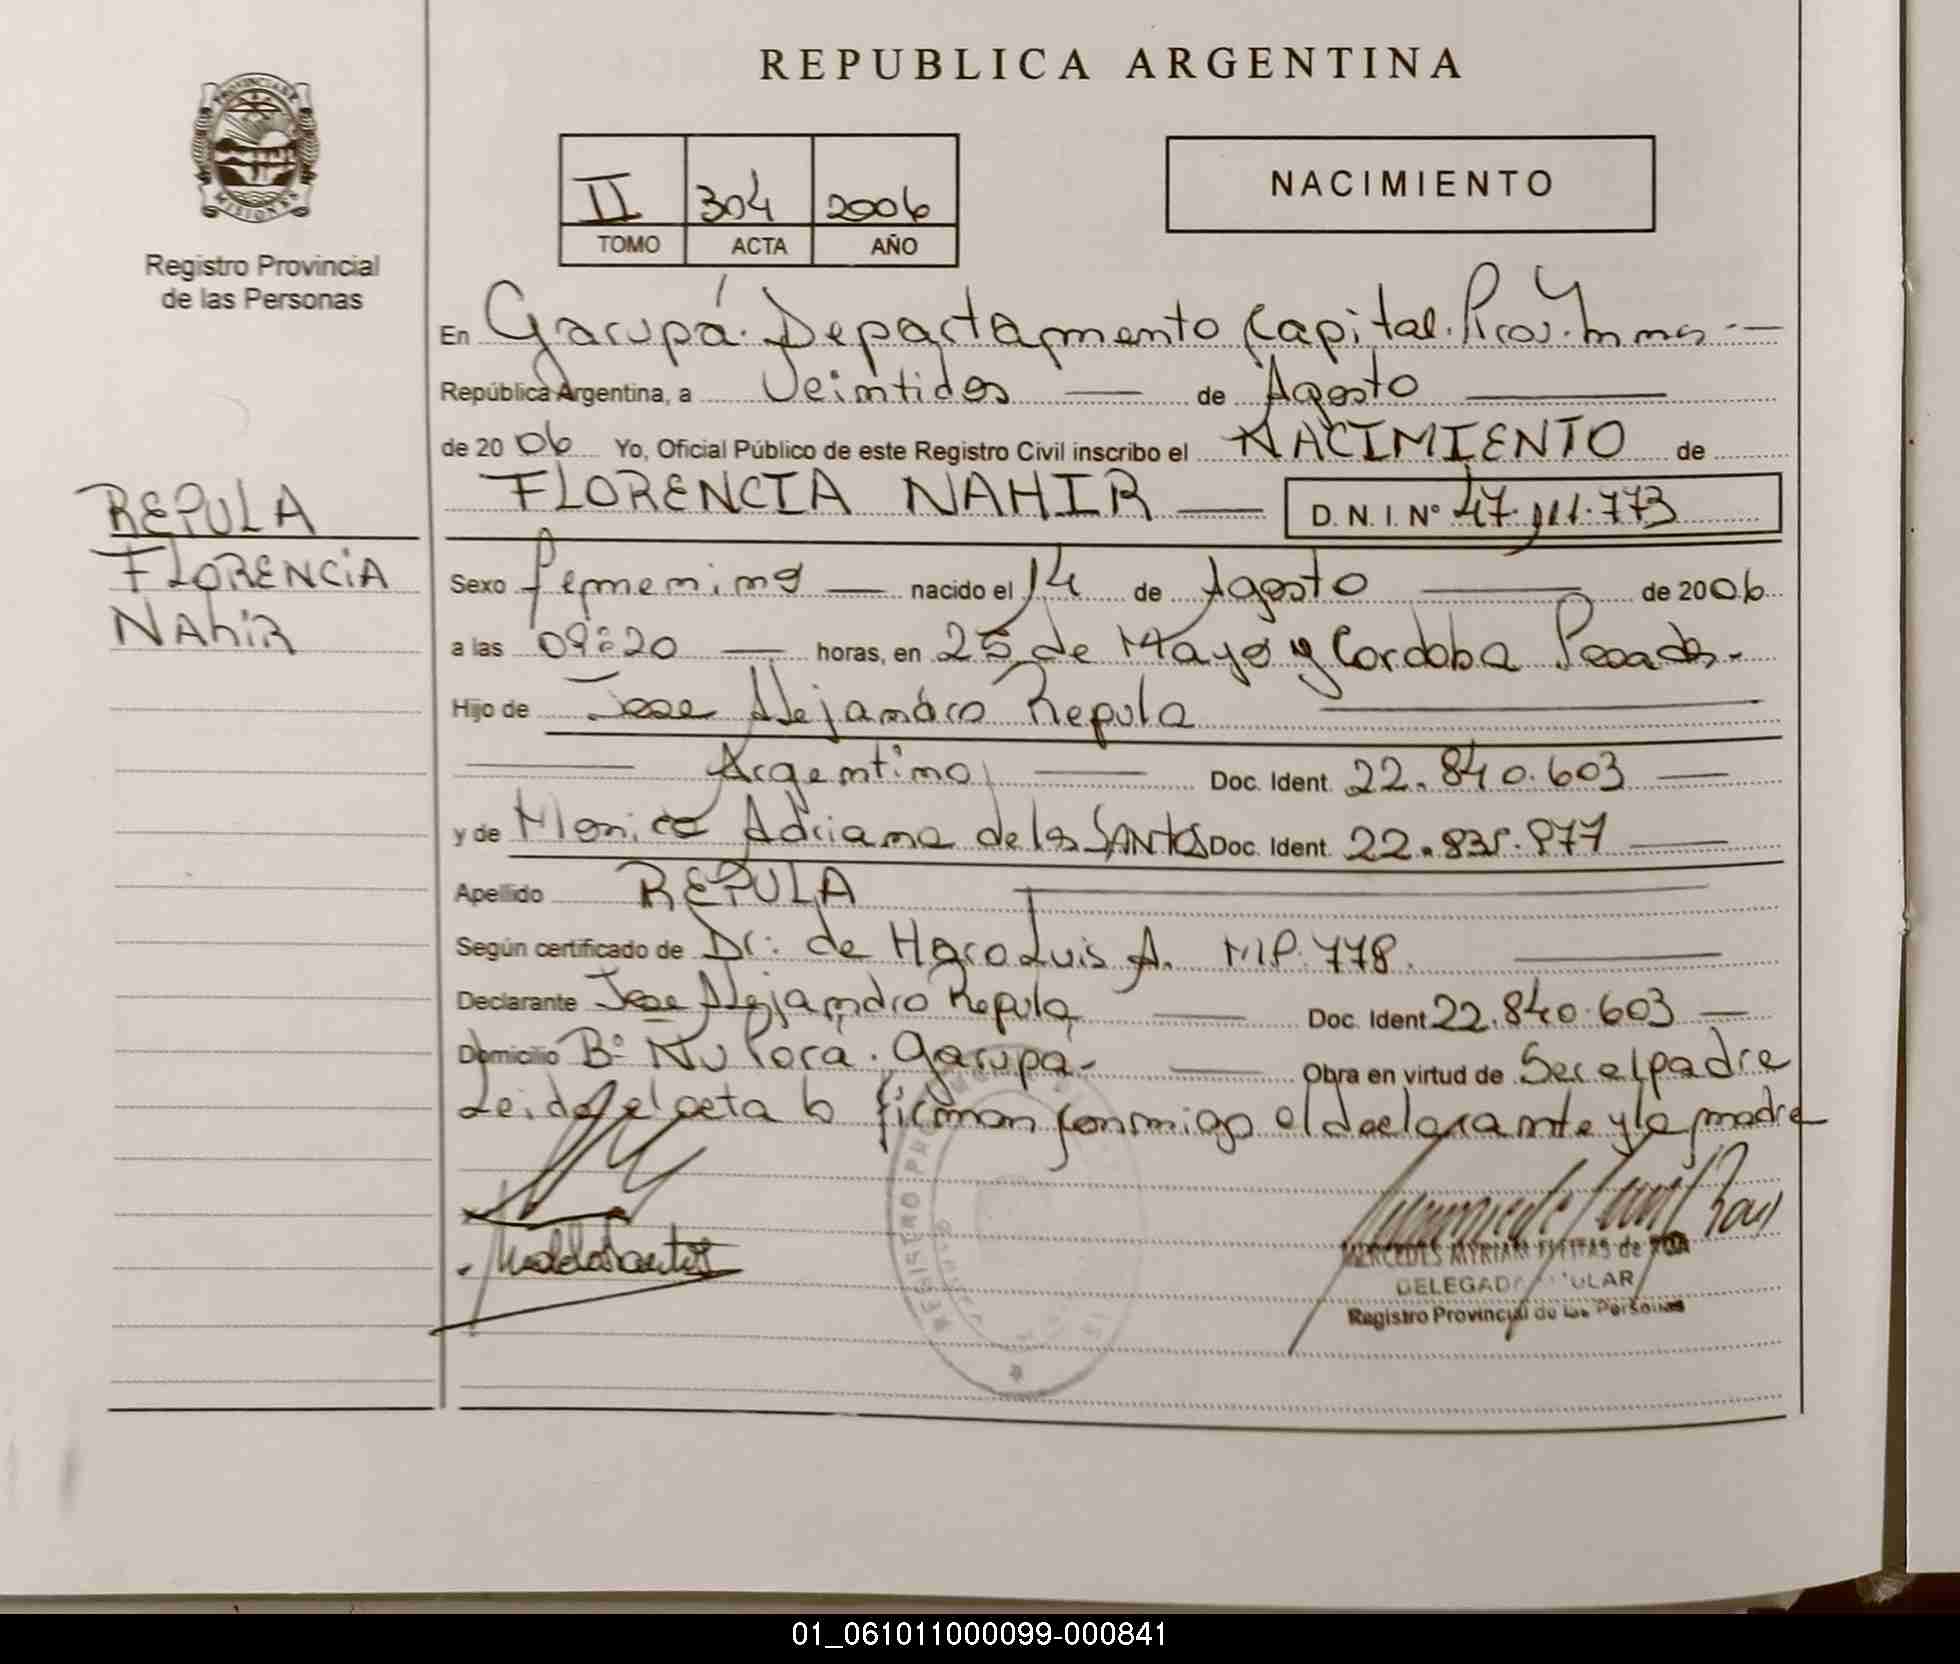 REPUBLICA ARGENTINA
PROVINCIA DE
MISIONES
Registro Provincial
de las Personas
II 304 2006
TOMO ACTA AÑO
NACIMIENTO
En Garupá. Departamento Capital. Prov. Mnes
República Argentina, a Veintidos de Agosto
de 2006 Yo, Oficial Público de este Registro Civil inscribo el NACIMIENTO de
FLORENCIA NAHIR D. N. I. N° 47.111.773
REPULA
FLORENCIA
NAhiR
Sexo femenino nacido el 14 de Agosto de 2006
a las 09:20 horas, en 25 de Mayo y Cordoba Posadas.
Hijo de Jose Alejandro Repula
Argentino Doc. Ident. 22.840.603
y de Monica Adriana de los SANtos Doc. Ident. 22.835.977
Apellido REPULA
Según certificado de Dr: de Haro Luis A. M.P. 778.
Declarante Jose Alejandro Repula Doc. Ident 22.840.603
Domicilio B° Ñu Pora. Garupá- Obra en virtud de Ser el padre
Leida el acta firman conmigo el declarante y la madre
MERCEDES MYRIAM de ROA
DELEGADA TITULAR
Registro Provincial de las Personas
01_061011000099-000841